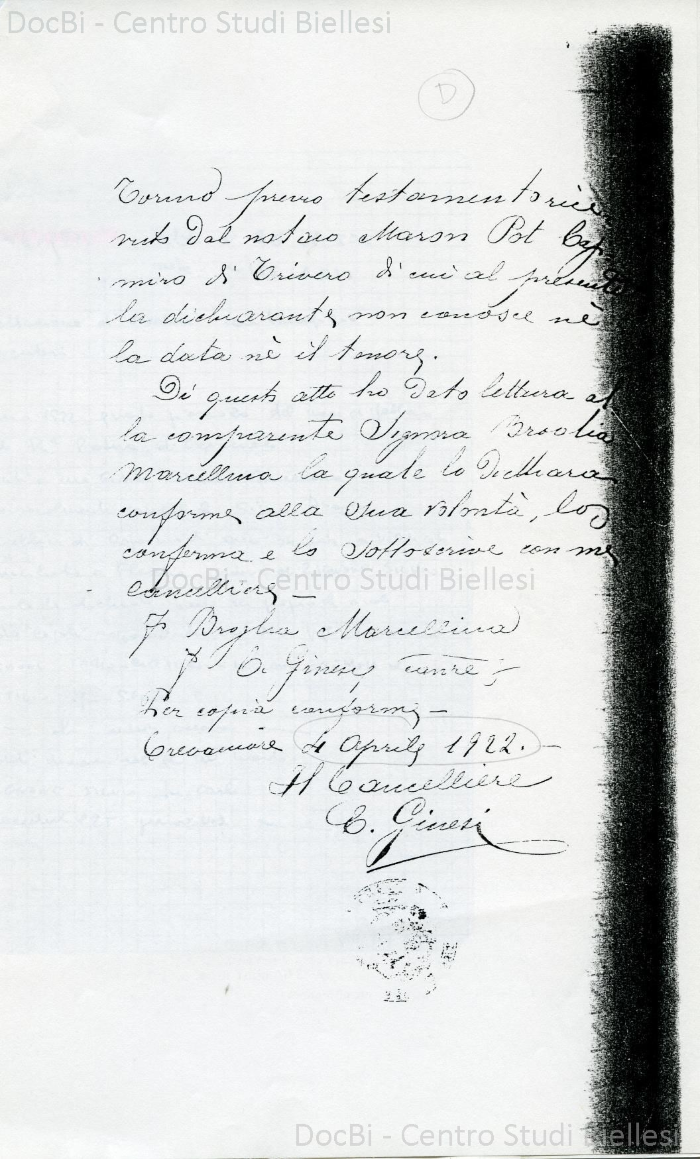 DocBi - Centro Studi Biellesi
D
Torino previo testamento rice
vuto dal notaio Maron Pot
miro di Trivero di cui al presente
la dichiarante non conosce nè
la data nè il tenore.
Di questo atto ho dato lettura al
la comparente Signora Broglia
Marcellina la quale lo dichiara
conforme alla sua volontà, lo
conferma e lo sottoscrive con me
Cancelliere —
Fº Broglia Marcellina
Fº C. Ginesi Canre:
Per copia conforme —
Crevacuore 4 Aprile 1922. —
Il Cancelliere
C. Ginesi
DocBi - Centro Studi Biellesi
DocBi - Centro Studi Biellesi